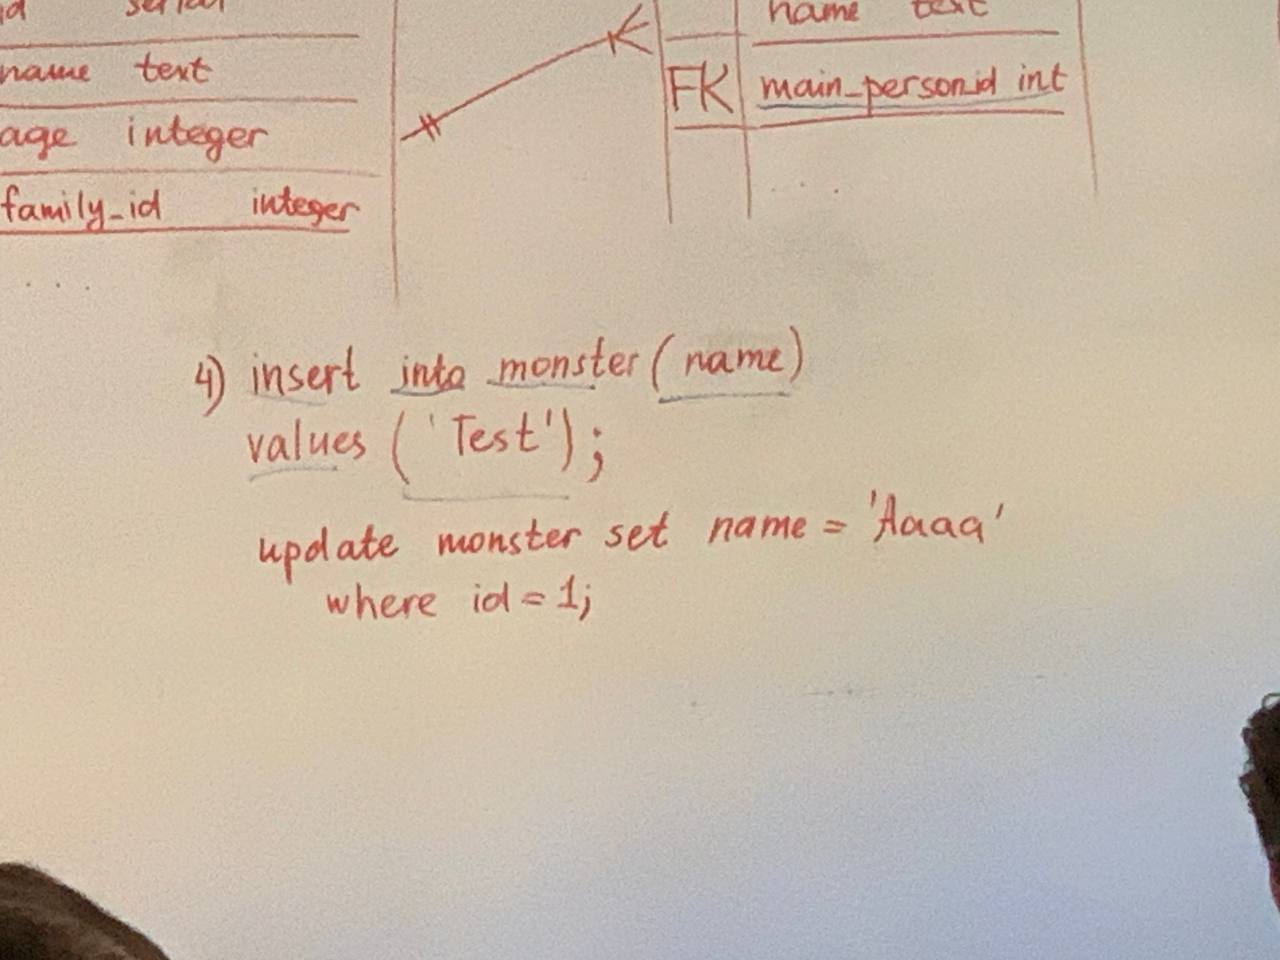 id serial
name text
age integer
family_id integer
. . .
name text
FK main_person_id int
. . . .
4) insert into monster (name)
values ('Test');
update monster set name = 'Aaaa'
where id = 1;